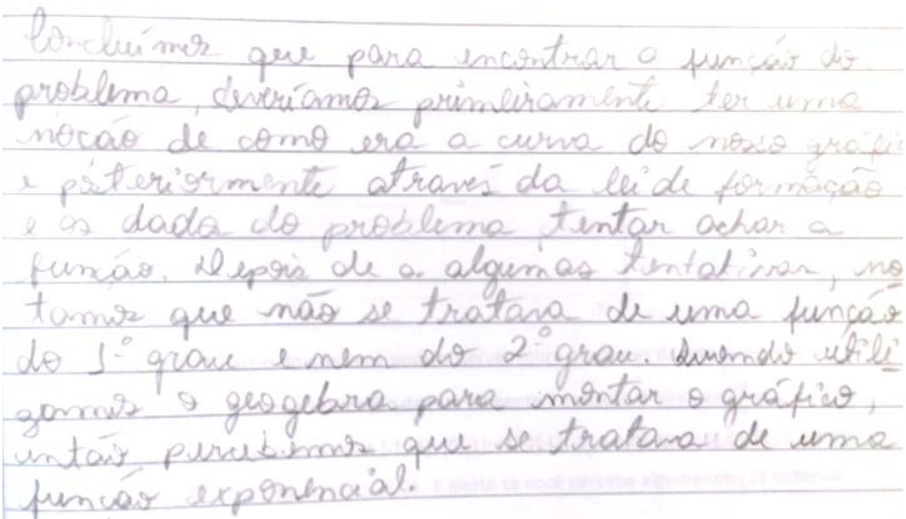 Concluímos que para encontrar a função do
problema, deveríamos primeiramente ter uma
noção de como era a curva do nosso gráfico
e posteriormente através da lei de formação
e os dada do problema, tentar achar a
função. Depois de a algumas tentativas, no
tamos que não se tratava de uma função
do 1º grau e nem do 2º grau. Quando utili
zamos o geogebra para montar o gráfico,
então percebemos que se tratava de uma
função exponencial.